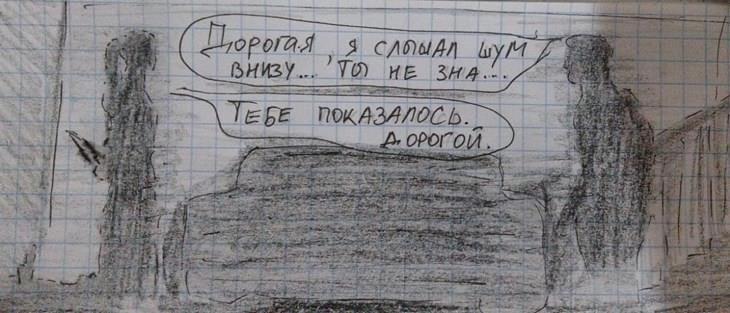 Дорогая, я слышал шум
внизу... ты не зна...
Тебе показалось.
дорогой.